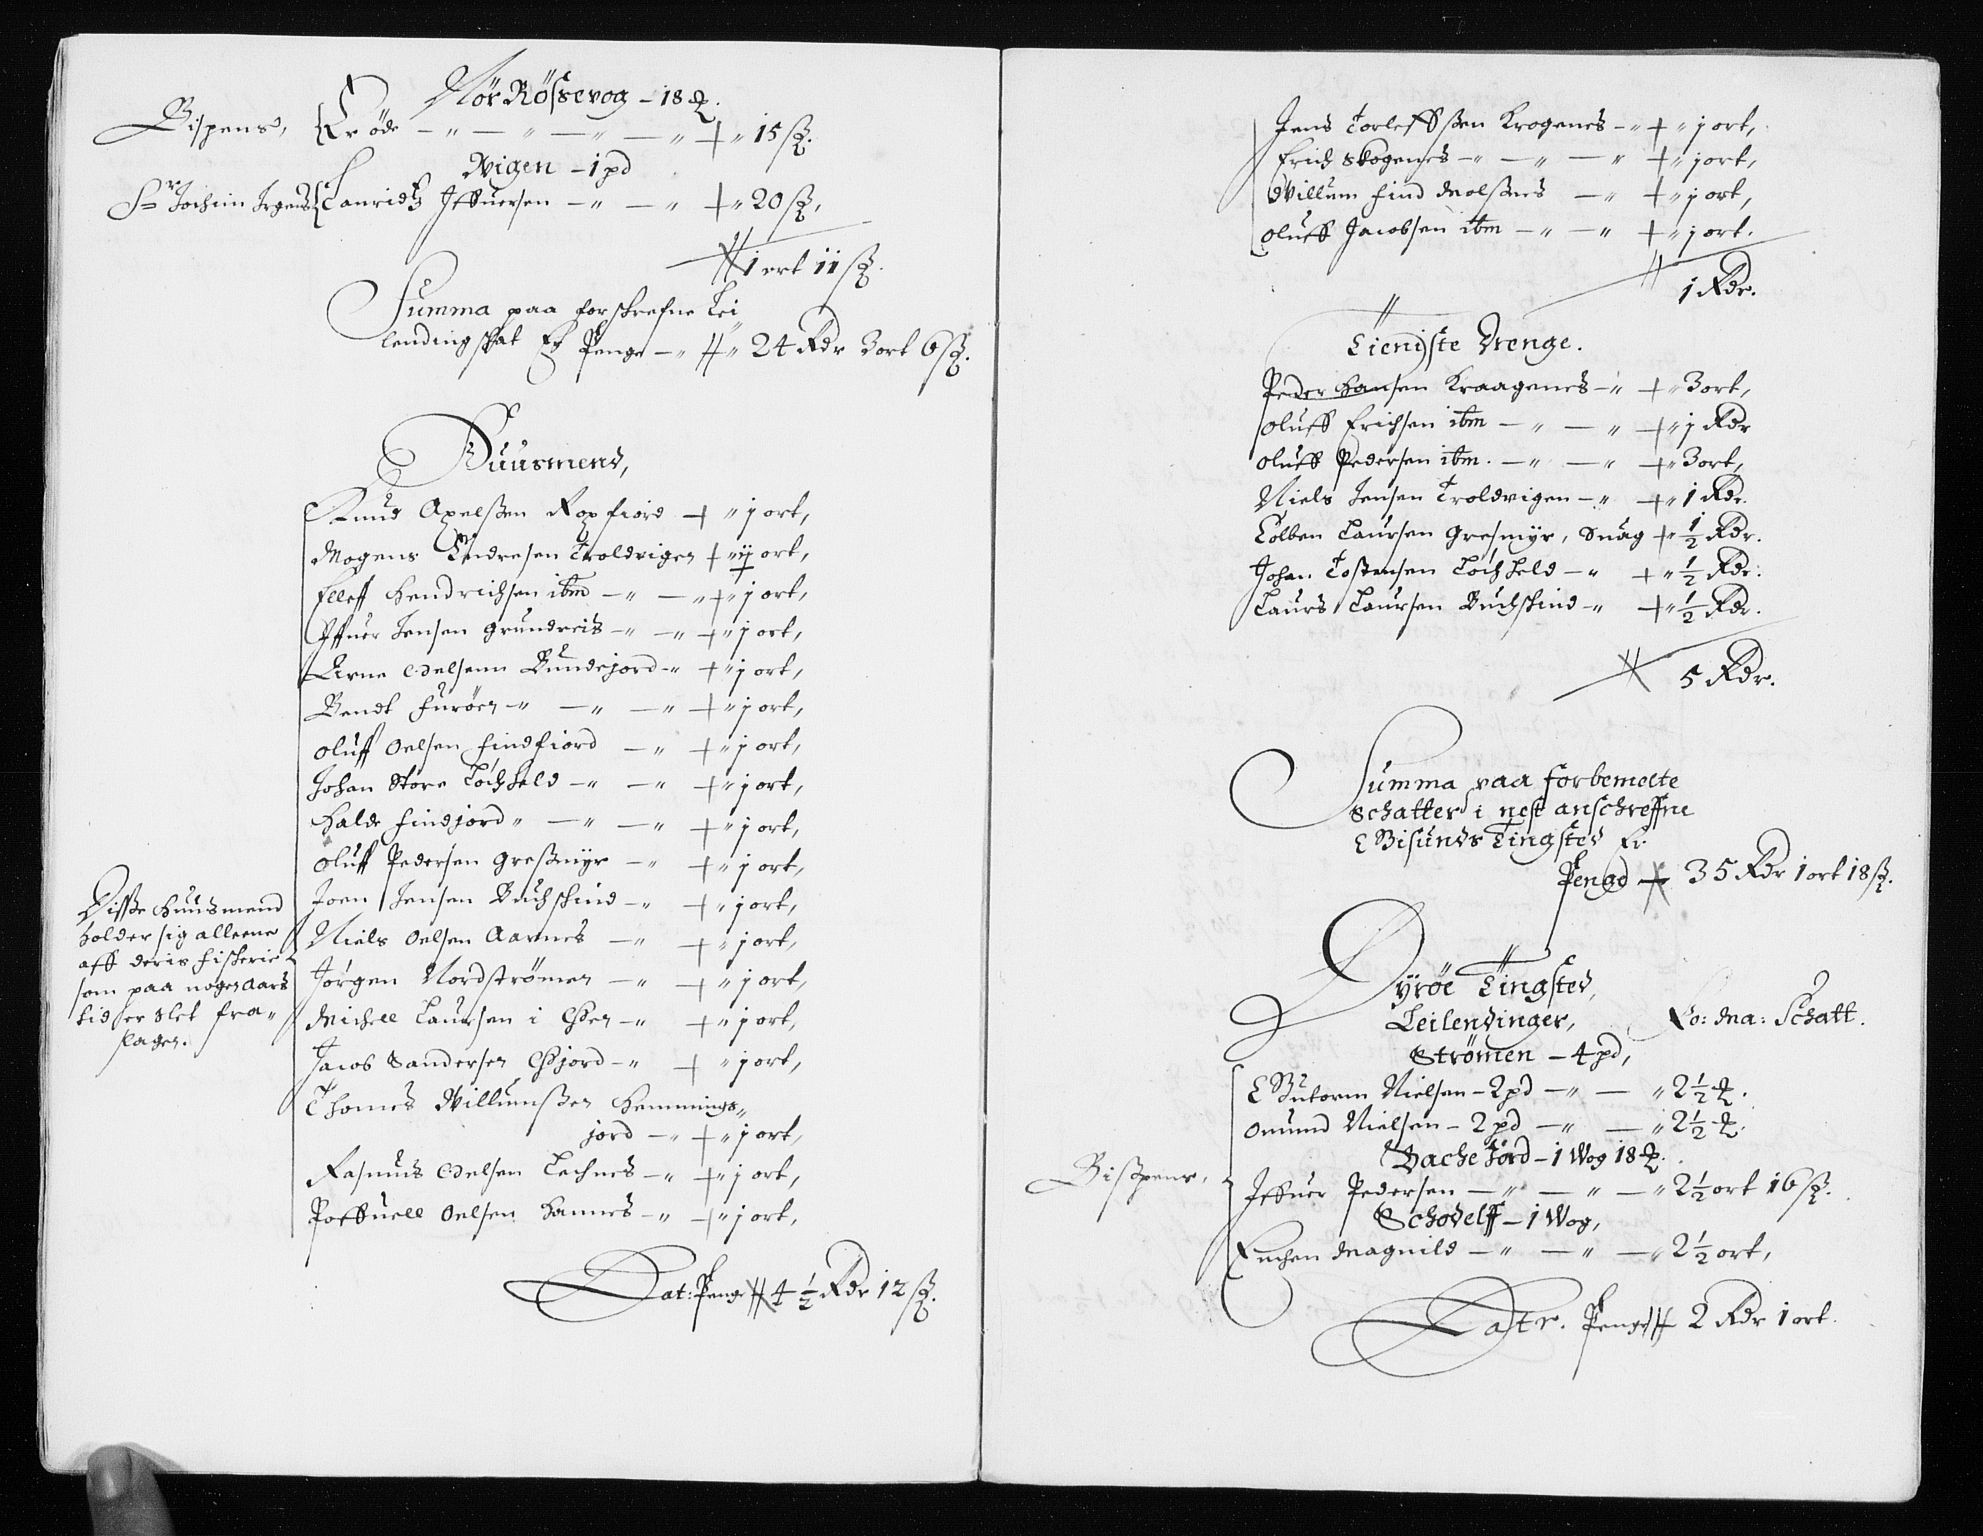 Nör Rösevog - 18 ℔.
Bispens, Er öde - " - " - " - " + " 15 ß.
Wigen - 1 pd
Sr Jochim Irgens Lauridtz Iffuersen - " - " + " 20 ß,
1 ort 11 ß.
Summa paa forschrefne Lei
lendingschat Er Penge - " 24 Rdr 3 ort 6 ß.
Huusmend,
Knud Axelsßen Roxfiord + " j ort,
Mogens Endresen Troldvigen + " ij ort,
Elleff Hendrichsen ibm - " - " + " j ort,
Iffuer Jensen Grundreis - " - " + " j ort,
Arne Oelsenn Bundejord - " + " j ort,
Bendt Furöen - " - " - " + " j ort,
Oluff Oelsen Findfiord - " + " j ort,
Johan Störe Löchheld - " - " + " j ort,
Halde Findjord " - " - " + " j ort,
Oluff Pedersen Gresmyr - " + " j ort,
Joen Jensen Buchschind - " + " j ort,
Niels Oelsen Aarnes - " + " j ort,
Jörgen Nordströmen - " + " j ort,
Michell Laursen i - " + " j ort,
Jacob Sandersen Gjord - " + " j ort,
Thomes Willumsßen Hemmings"
jord - " + " j ort,
Rasmus Oelsen Lechnes - " + " j ort,
Poffuell Oelsen Hannes - " + " j ort,
Disße Huusmend
holder sig alleene
aff deris fischerie
som paa nogen Aars
tid er slet fra"
slagen.
Lat: Penge 4 1/2 Rdr 12 ß.
Jens Torleffsßen Krogenes - " + " j ort,
Erich Skogenes - " - " - " + " j ort,
Willum Find Molsnes - " + " j ort,
Oluff Jacobsen ibm - " - " + " j ort.
1 Rdr.
Tieniste Drenge.
Peder Hansen Kraagenes - " + " 3 ort,
Oluff Erichsen ibm - " - " + " j Rdr
Oluff Pedersen ibm. - " - " + " 3 ort,
Niels Jensen Troldvigen - " + " 1 Rdr.
Colben Laursen Gresmyr, Snäg + " 1/2 Rdr.
Johan Tostensen Löchheld - " + " 1/2 Rdr.
Laurs Laursen Buchschind - " + " 1/2 Rdr.
5 Rdr.
Summa paa forbemelte
Schatter i nest anschreffne
Gisunds Tingsted Er
Penge 35 Rdr 1 ort 18 ß.
Dyröe Tingsted,
Leilendinger, Ko: Ma: Schatt.
Strömen - 4 pd,
Gutorm Nielsen - 2 pd - " - " 2 1/2 ℔.
Omund Nielsen - 2 pd - " - " 2 1/2 ℔.
Bache Jord - 1 Wog 18 ℔.
Bisßpens, Iffuer Pedersen - " - " - " 2 1/2 ort 16 ß.
Schodelff - 1 Wog,
Enchen Magnild - " - " - " 2 1/2 ort,
Latr. Penge 2 Rdr 1 ort.